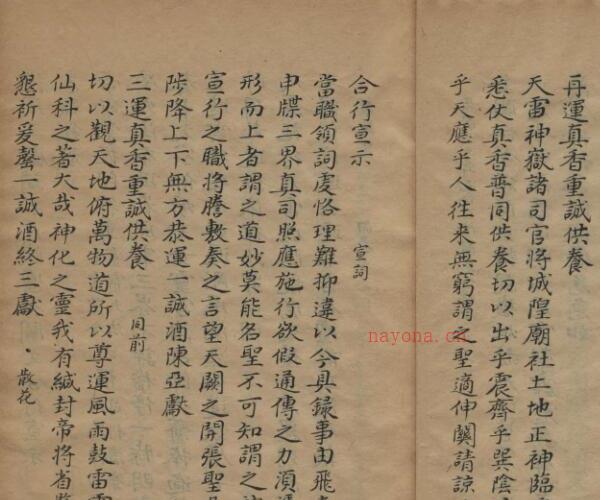 再運真香重誠供養
天雷神嶽諸司官將城隍廟社土地正神臨
悉仗真香普同供養切以出乎震齊乎巽陰
乎天應乎人往來無窮謂之聖適伸關請諒
合行宣示 宣詞
當職領詞虔恪理難抑違以今具錄事由飛
申牒三界真司照應施行欲假通傳之力須
形而上者謂之道妙莫能名聖不可知謂之
宣行之職將謄敷奏之言望天闕之開張聖
陟降上下無方恭運一誠酒陳亞獻
三運真香重誠供養 同前
切以觀天地俯萬物道所以尊運風雨鼓雷
仙科之著大哉神化之靈我有緘封帝將省
懇祈爰罄一誠酒終三獻 · 散花
nayona.cn